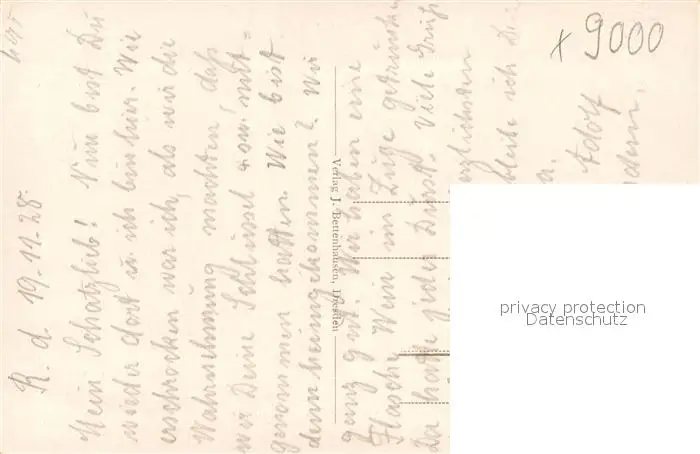 R. d. 19.11.28.
Mein Schatzlieb! Nun bist Du
wieder dort u. ich bin hier. Wie
erschrocken war ich, als wir die
Wahrnehmung machten, daß
wir Deine Schlüssel mit=
genommen hatten. Wie bist
denn heimgekommen? Wir
ganz gut. Wir haben eine
Flasche Wein im Zuge getrunken
Da hatte jeder Durst. Viele Grüße
bleibe ich D
Adolf
Verlag J. Bettenhausen, Dresden
x 9000
privacy protection
Datenschutz